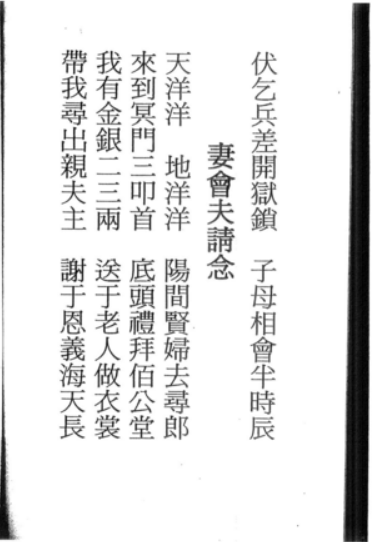 伏乞兵差開獄鎖　子母相會半時辰
妻會夫請念
天洋洋　地洋洋　陽間賢婦去尋郎
來到冥門三叩首　底頭禮拜佰公堂
我有金銀二三兩　送于老人做衣裳
帶我尋出親夫主　謝于恩義海天長